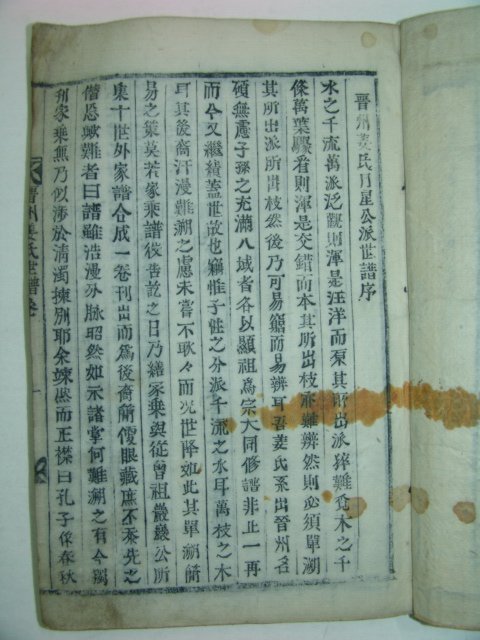 晋州姜氏月星公派世譜序
水之千流萬派泛觀則渾是汪洋而泵其所出派猝難覔木之千
條萬葉驟看則渾是交錯而本其所出枝亦難辨然則必須單溯
其所出派所出枝然後乃可易簡而易辨耳吾姜氏系出晉州名
碩無慮子孫之充滿八域者各以顯祖爲宗大同修譜非止一再
而今又繼蓋世故也竊惟子姓之分派千流之水耳萬枝之木
耳其後裔汗漫難溯之慮未嘗不耿々而况世降如此其單溯簡
易之策莫若家乘譜役告訖之日乃繕家乘與從曾祖巖公所
乘十世外家譜合成一卷刊出而爲後裔簡便眼藏庶不忝先之
僭恐歟難者曰譜雖浩漫外脉昭然如示諸掌何難溯之有今爲
刊家乘無乃似涉於淸濁揀別耶余竦然而正襟曰孔子修春秋
晋州姜氏世譜卷一